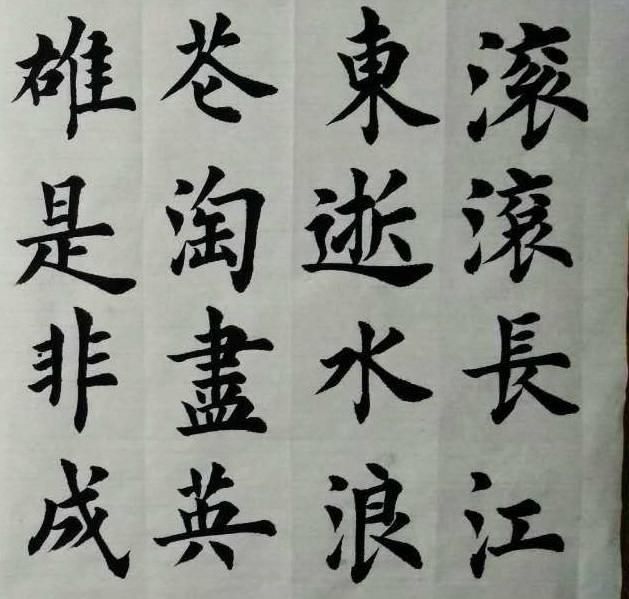 滚滾長江
東逝水浪
苍淘盡英
雄是非成